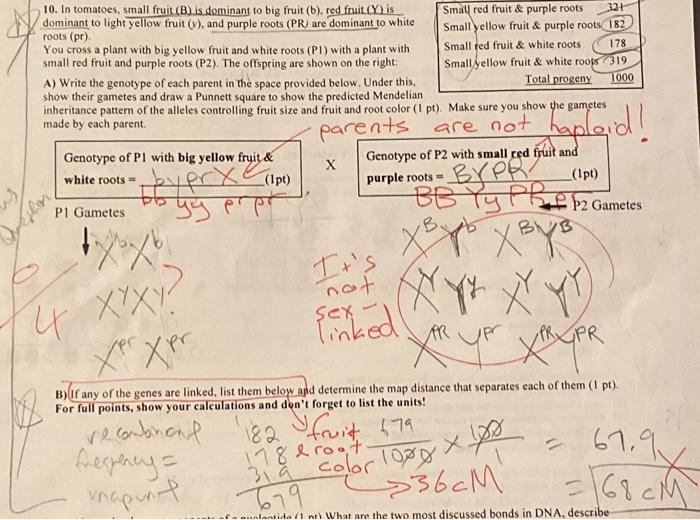 10. In tomatoes, small fruit (B) is dominant to big fruit (b), red fruit (Y) is
dominant to light yellow fruit (y), and purple roots (PR) are dominant to white
roots (pr).
You cross a plant with big yellow fruit and white roots (P1) with a plant with
small red fruit and purple roots (P2). The offspring are shown on the right:
Small red fruit & purple roots 321
Small yellow fruit & purple roots 182
Small red fruit & white roots 178
Small yellow fruit & white roots 319
Total progeny 1000
A) Write the genotype of each parent in the space provided below. Under this,
show their gametes and draw a Punnett square to show the predicted Mendelian
inheritance pattern of the alleles controlling fruit size and fruit and root color (1 pt). Make sure you show the gametes
made by each parent.
parents are not haploid!
Genotype of P1 with big yellow fruit &
white roots = bypr X (1pt)
bb yy pr pr
X
Genotype of P2 with small red fruit and
purple roots = BYPR (1pt)
BB Yy PR pr
P1 Gametes
P2 Gametes
X^b X^b
X^B Y^b X^B Y^B
It's
not
sex-
linked
X^y X^y ?
X^Y Y^y X^Y Y^Y
X^pr X^pr
X^PR Y^pr X^PR Y^PR
4
B) If any of the genes are linked, list them below and determine the map distance that separates each of them (1 pt).
For full points, show your calculations and don't forget to list the units!
recombinant
frequency =
map unit
182
178
319
679
fruit
& root
color
679
1000 × 100
1 = 67.9
→ 36cM
= 68 cM
(1 pt) What are the two most discussed bonds in DNA, describe